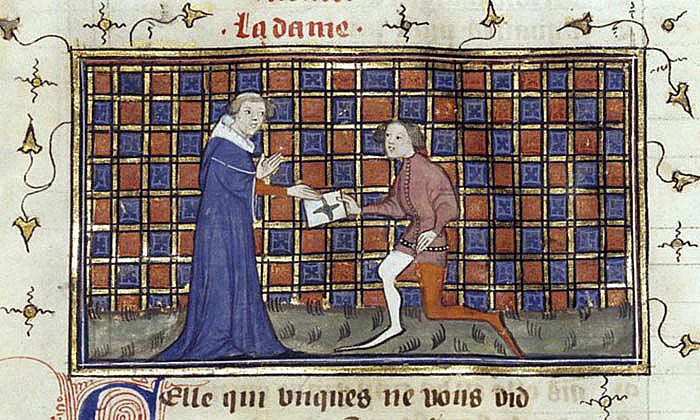 · La dame ·
Celle qui vnques ne vous vid